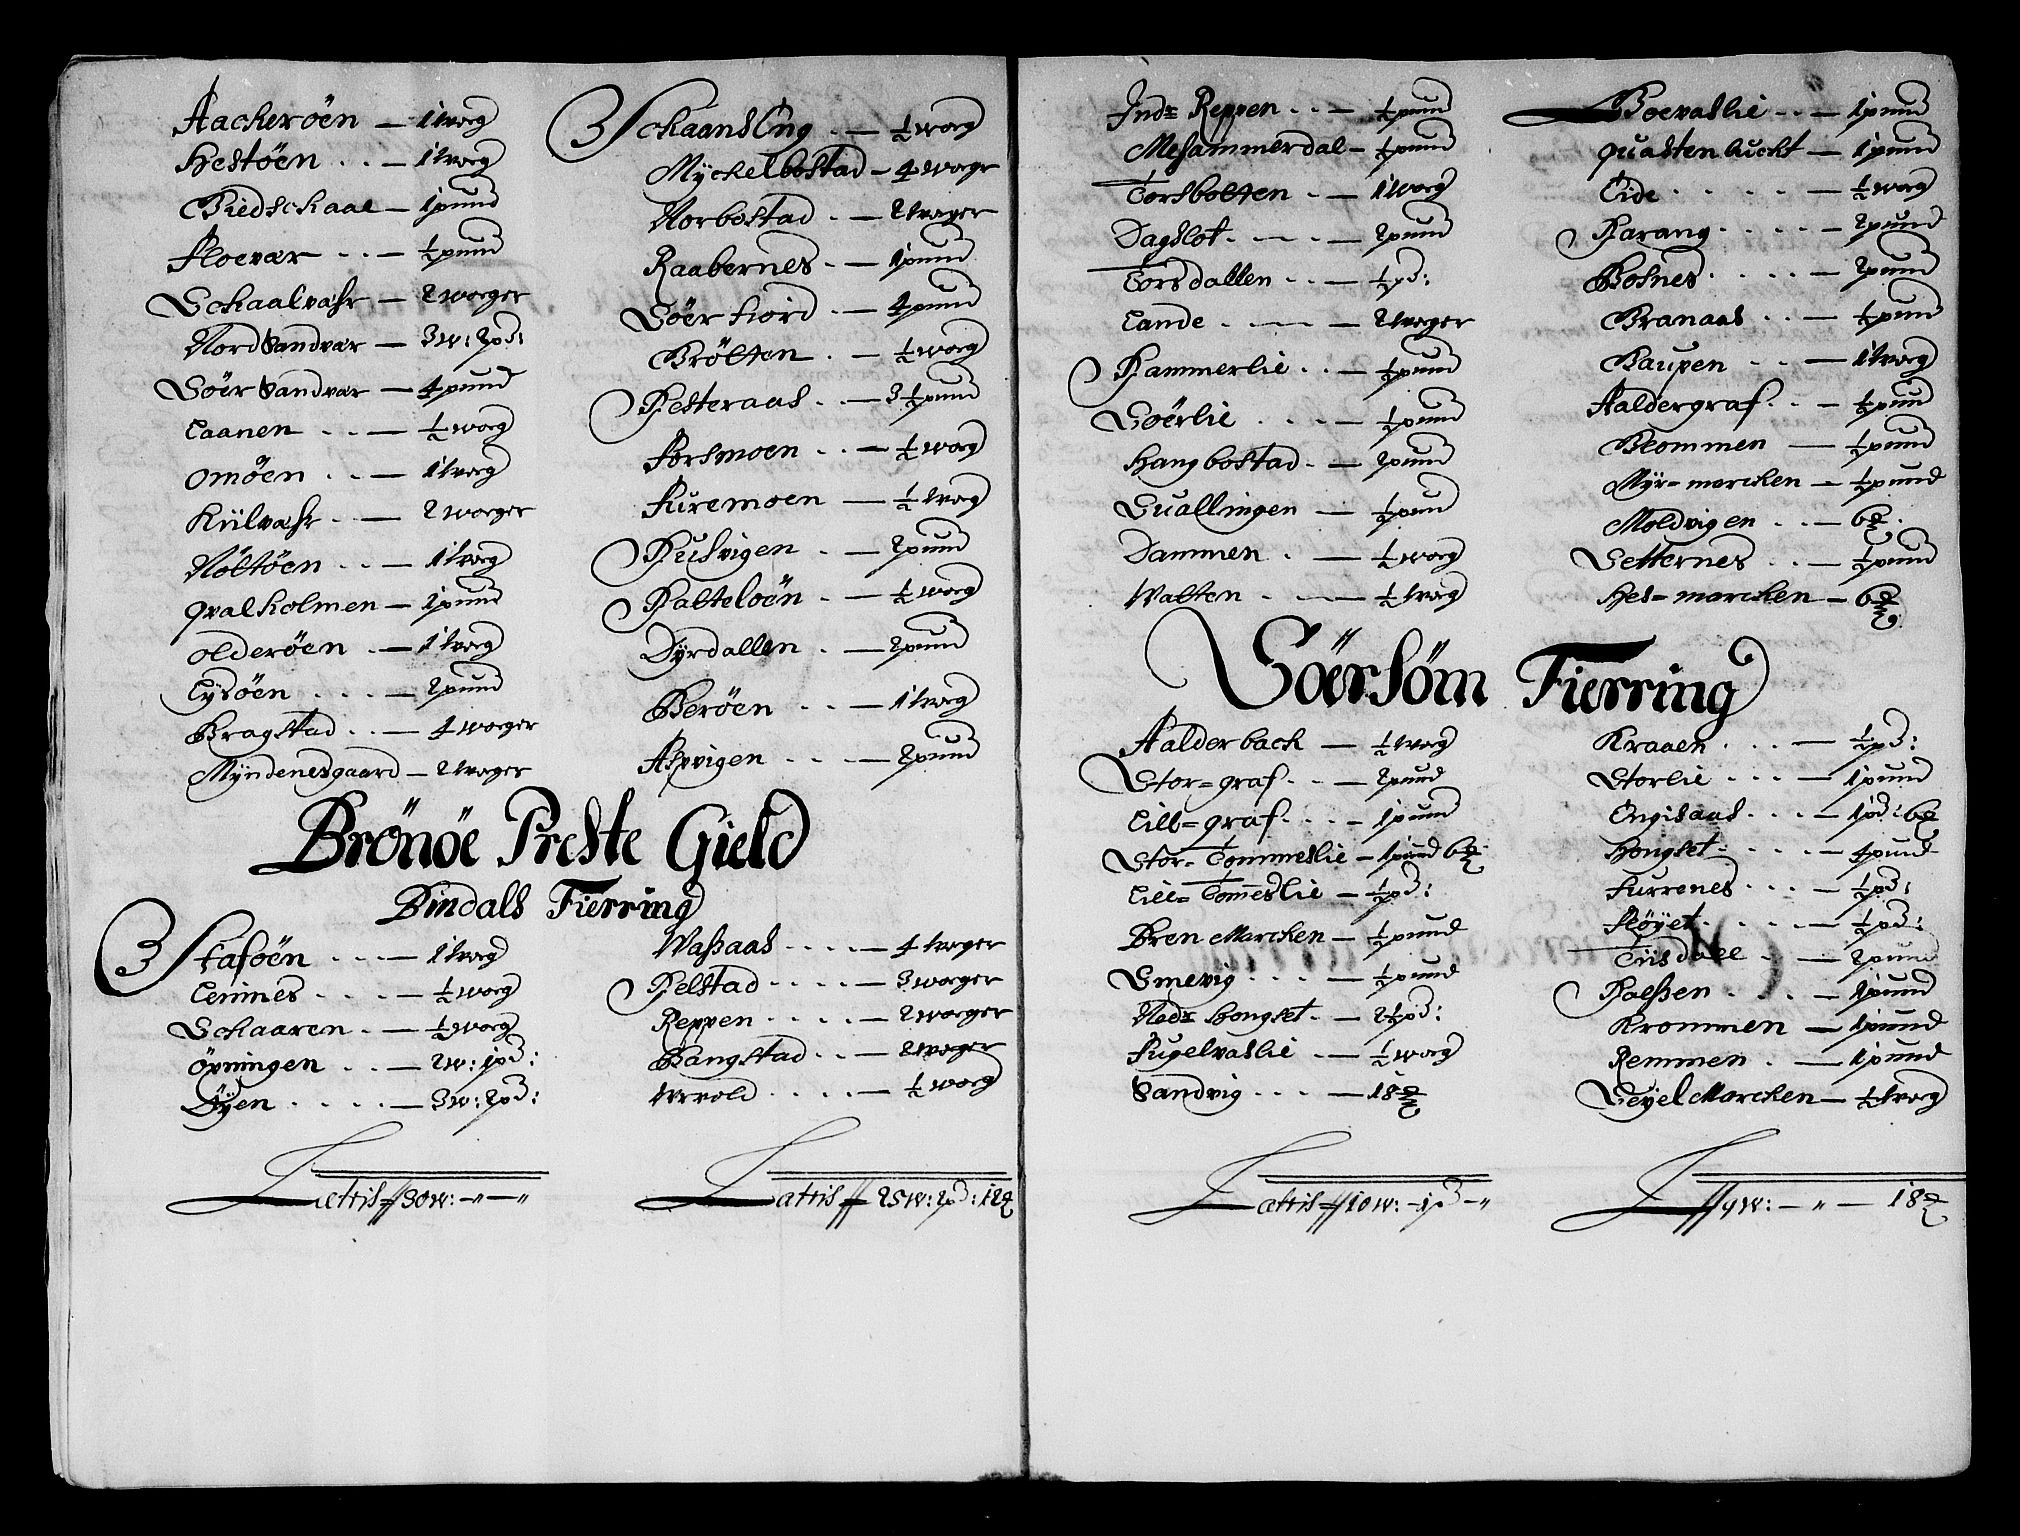 Aackeröen — 1 worg
Hestöen . . — 1 worg
Biedschaae — 1 pund
Floevær . . — ½ pund
Schaalvahr — 2 worger
Nord Sandvær — 3 w: 2 pd:
Söer Sandvær — 4 pund
Laanen . . — ½ worg
Omöen . . — 1 worg
Kiilvahr . . — 2 worger
Nöltöen . . — 1 worg
Qvalholmen — 1 pund
Olderöen . — 1 worg
Lysöen . . . — 2 pund
Bragstad . . — 4 worger
Myndenesgaard — 2 worger
Schaanseng . . — ½ worg
Myckelbostad — 4 worger
Norbostad . . — 2 worger
Raabernes . — 1 pund
Söer Fiord . — 4 pund
Brölten . . — ½ worg
Hesteraas . . — 3 ½ pund
Forsmoen . . — ½ worg
Furemoen — ½ worg
Husvigen . — 2 pund
Kalteloën . — ½ worg
Dyrdallen . — 2 pund
Beröen . . — 1 worg
Aspvigen . . . — 2 pund
Brönöe Preste Gield
Bindals Fierring
Staföen . . . — 1 worg
Lenines . . . — ½ worg
Schaaren . . — ½ worg
Öpningen . . — 2 w: 1 pd:
Öyen . . . . — 3 w: 2 pd:
Waßaas . . . . — 4 worger
Helstad . . . . — 3 worger
Reppen . . . . — 2 worger
Bangstad . . — 2 worger
Urvold . . . . — ½ worg
Latris ff 30 w: — " — "
Latris ff 25 w: 2 pd: 12 ℔
Indr Reppen . . — ½ pund
Mesammerdal — ½ pund
Torsbotten . . — 1 worg
Dagslot . . . — 2 pund
Torsdallen . . . — ½ pd:
Lande . . . — 2 worger
Hammerlie . . — ½ pund
Söerlie . . . — ½ pund
Hangbostad . — 2 pund
Suallingen — ½ pund
Dammen . — ½ worg
Walten . . — ½ worg
Boevaslie . . — 1 pund
Quasten lucht — 1 pund
Eide . . . . — ½ worg
Harang . . . . — 2 pund
Bosnes . . . . — 2 pund
Branaas . . — ½ pund
Haupen . . — 1 worg
Aaldergraf . . — ½ pund
Blommen — ½ pund
Myr= marcken — ½ pund
Moldvigen . . — 6 ℔
Setternes . . — ½ pund
Hes= marcken — 6 ℔
Söersöm Fierring
Aalderbach — ½ worg
Stor= graf . . — 2 pund
Lill= graf . . . — 1 pund
Stor= Tommeslie — 1 pund 6 ℔
Lill= Tom̅eslie — ½ pd:
Bren Marcken — ½ pund
Smevig . . . — ½ pund
Nedr Hongset . — 2 ½ pd:
Fugelvaslie . — ½ worg
Sandvig . . . — 18 ℔
Kraaen . . . — ½ pd:
Storlie . . . — 1 pund
Engisaas . . . — 1 pd: 6 ℔
Hongset . . . — 4 pund
Furrenes . . . — ½ pd:
Flöyet . . . — ½ pd:
Tiisdall . . — 2 pund
Kaelßen . . . — 1 pund
Krommen — 1 pund
Remmen . — 1 pund
Seyel Marcken — ½ worg
Latris ff 10 w: — 1 pd — "
L ff 9 w: — " — 18 ℔